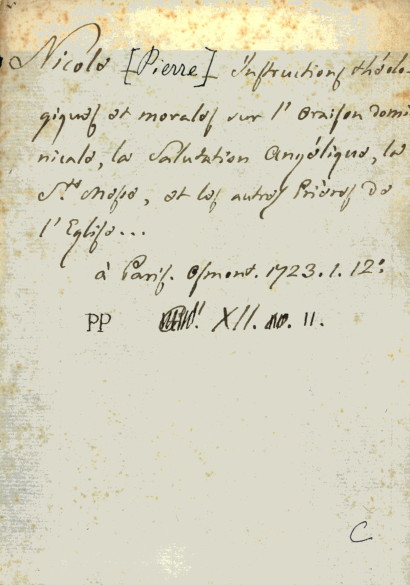 Nicole [Pierre] Instructions théolo-
giques et morales sur l' oraison domi
nicale, la Salutation Angélique, la
Ste Messe, et les autres Prières de
l'Eglise...
à Paris. Osmont. 1723. 1. 12º
PP XII. no. 11.
C